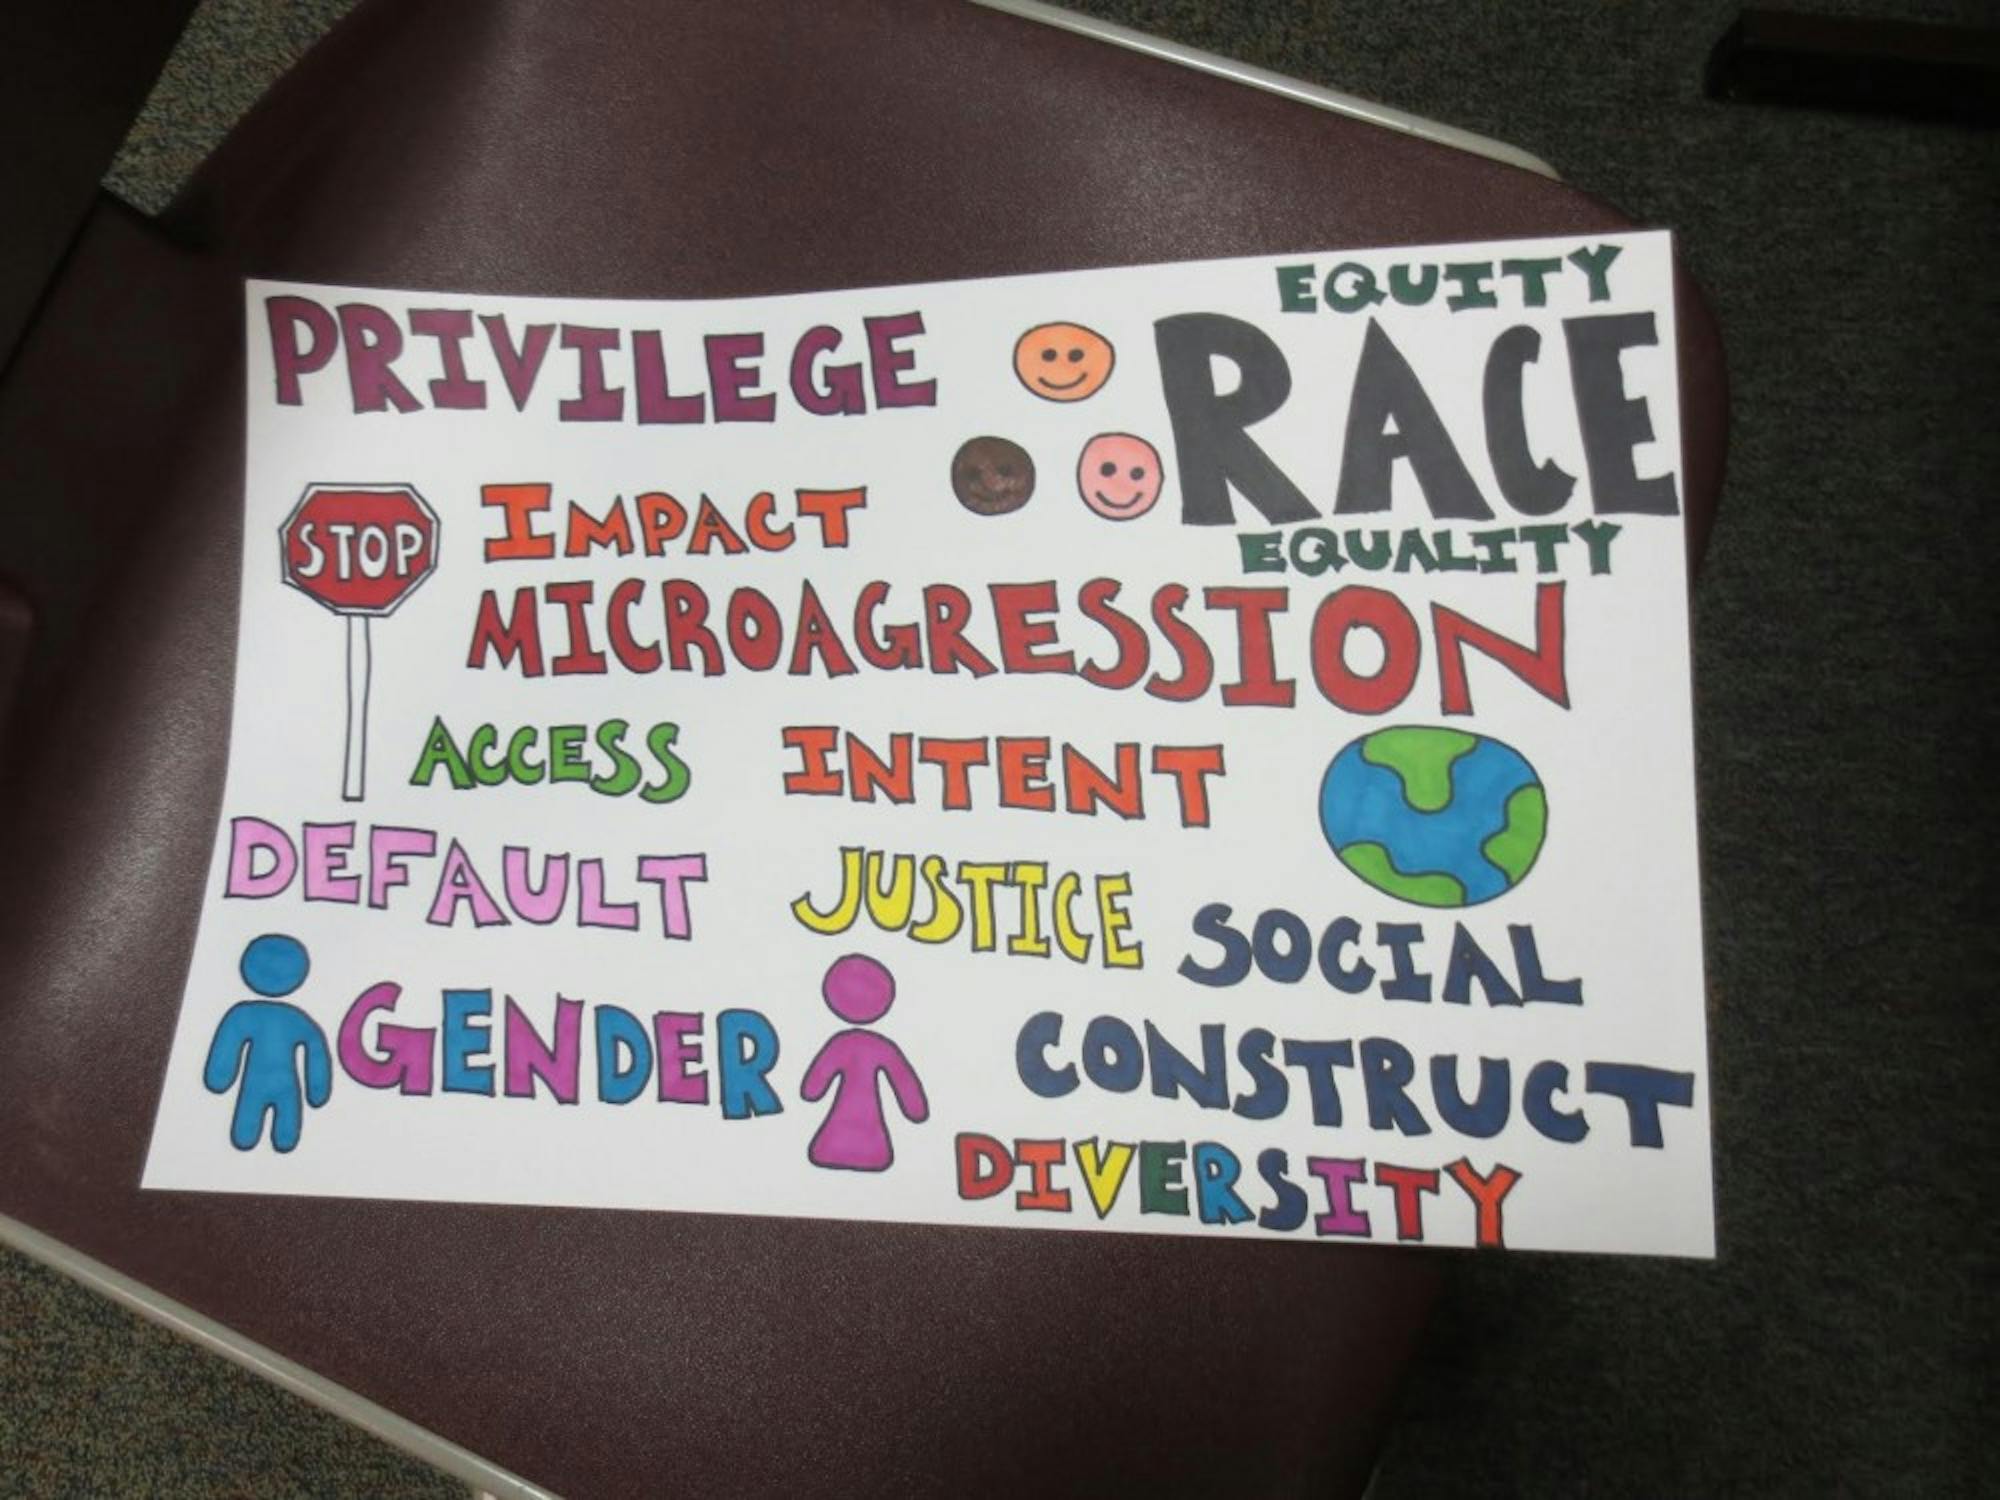 EQUITY
PRIVILEGE
RACE
STOP
IMPACT
EQUALITY
MICROAGRESSION
ACCESS
INTENT
DEFAULT
JUSTICE
SOCIAL
GENDER
CONSTRUCT
DIVERSITY